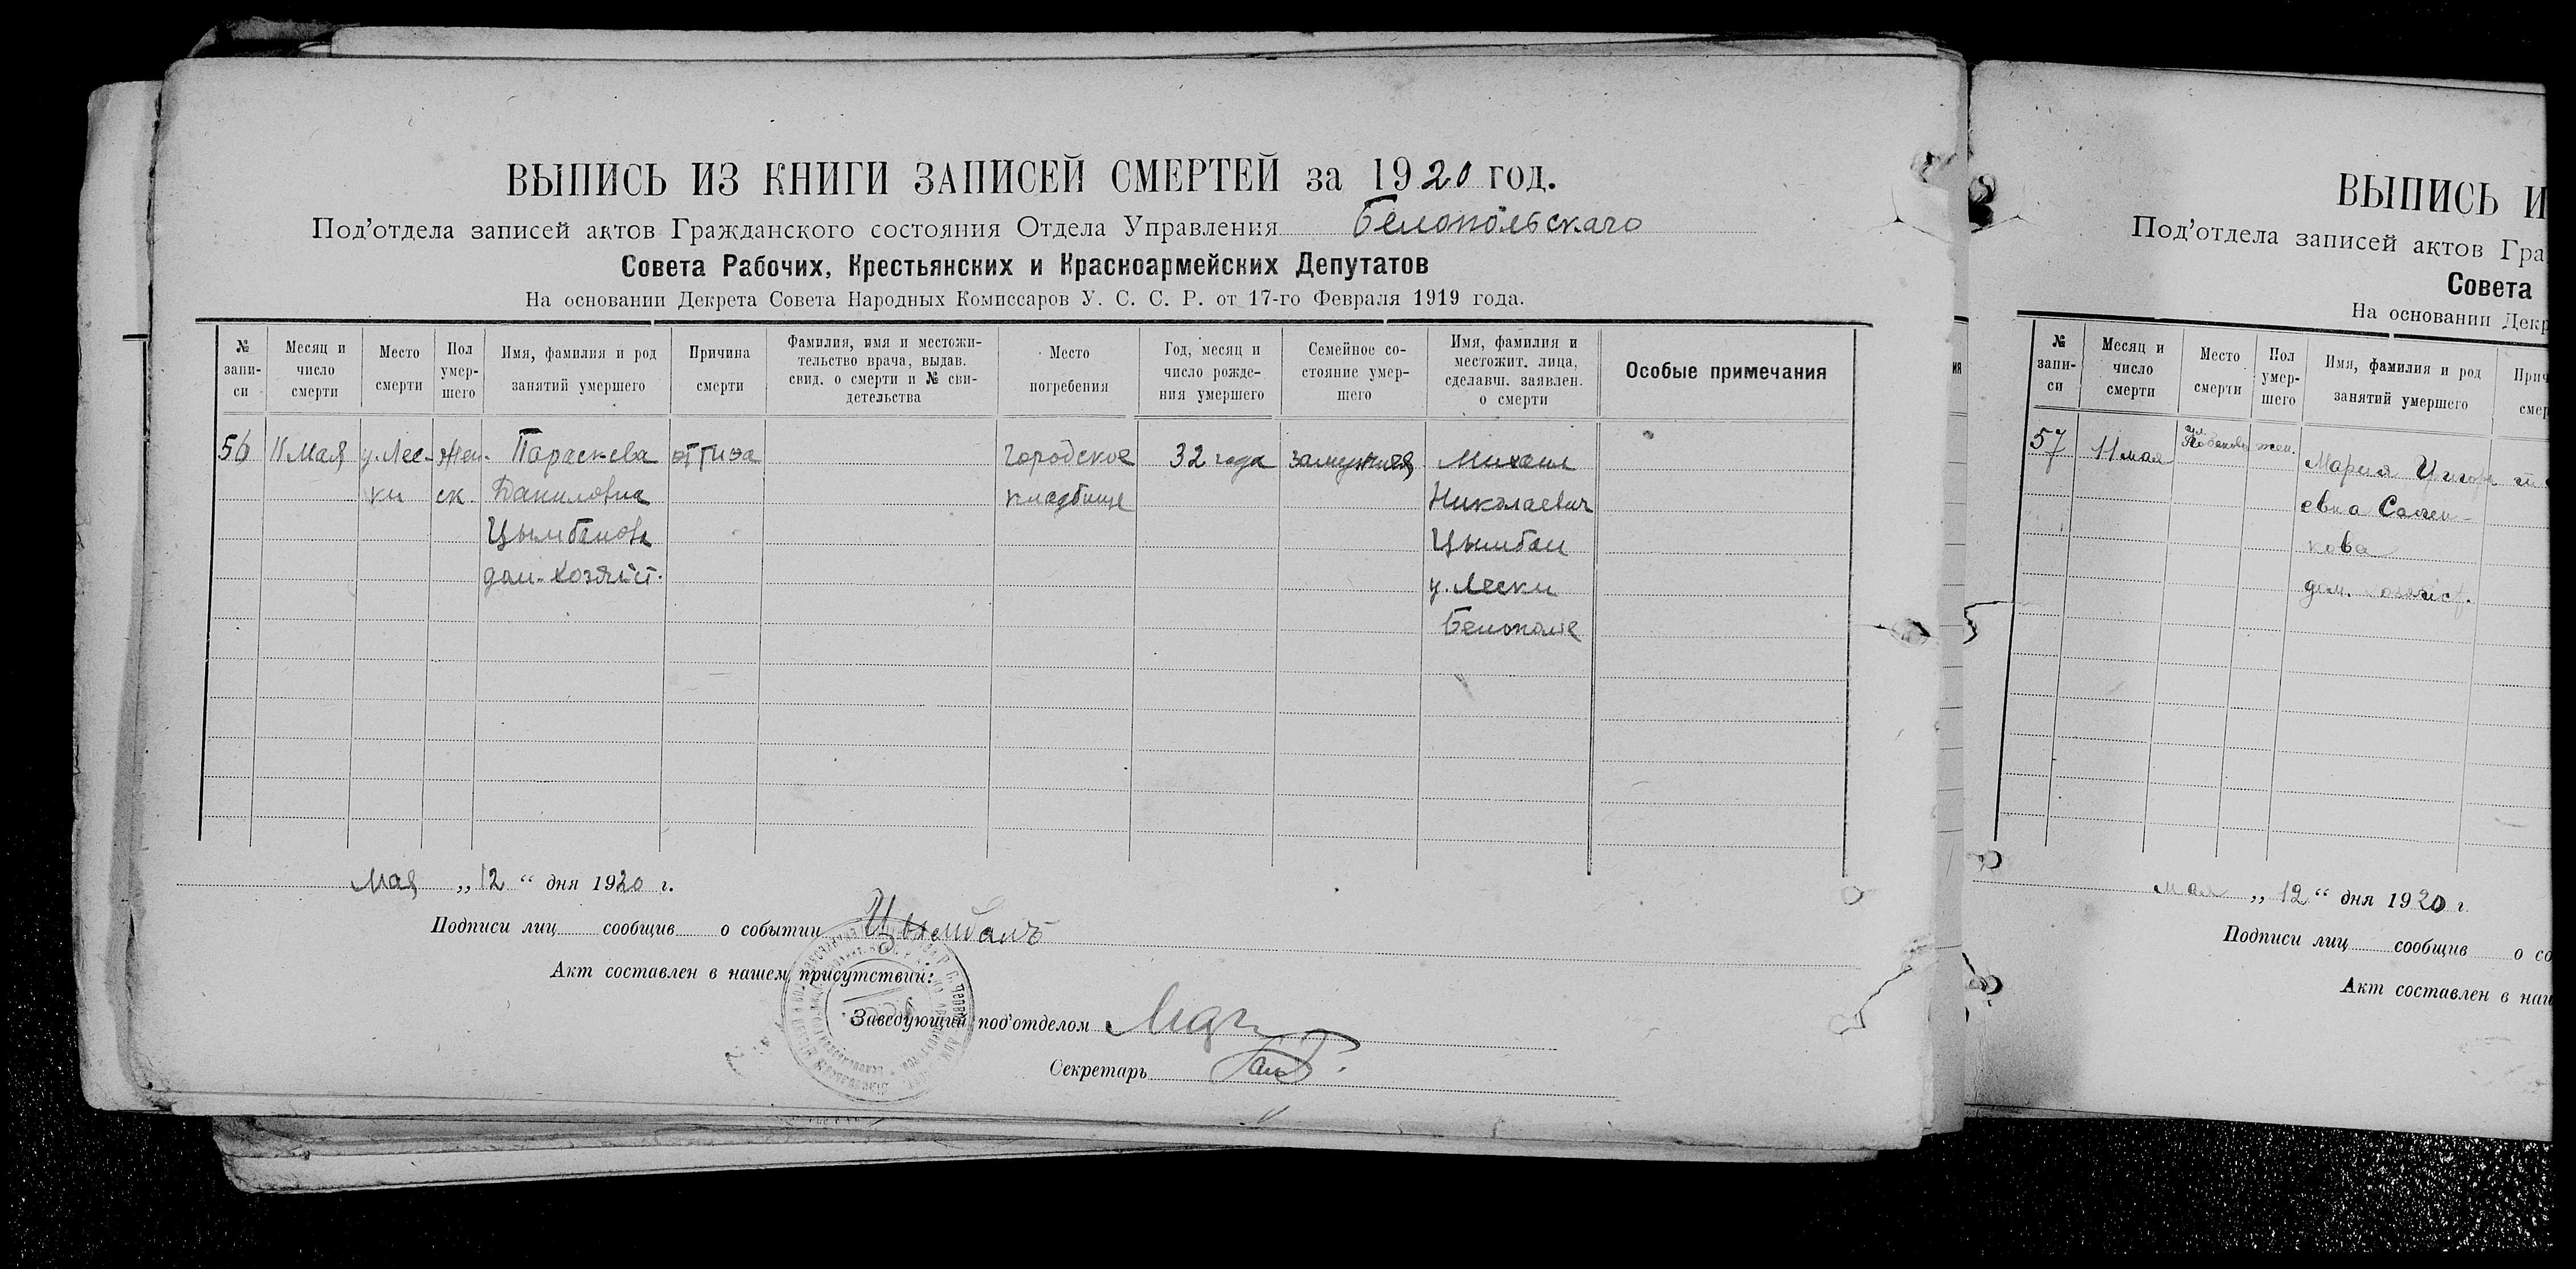 ВЫПИСЬ ИЗ КНИГИ ЗАПИСЕЙ СМЕРТЕЙ за 1920 год.
Под'отдела записей актов Гражданского состояния Отдела Управления Белопольскаго
Совета Рабочих, Крестьянских и Красноармейских Депутатов
На основании Декрета Совета Народных Комиссаров У. С. С. Р. от 17-го Февраля 1919 года.
№ записи
Месяц и число смерти
Место смерти
Пол умершего
Имя, фамилия и род занятий умершего
Причина смерти
Фамилия, имя и местожительство врача, выдав. свид. о смерти и № свидетельства
Место погребения
Год, месяц и число рождения умершего
Семейное состояние умершего
Имя, фамилия и местожит. лица, сделавш. заявлен. о смерти
Особые примечания
56 11 Мая у. Лес- Жен- Параскева от тиза Городское 32 года замужняя Михаил
ки ск. Даниловна кладбище Николаевич
Цымбалова Цымбал
дом. хозяйст. у. Лески
Белополье
Мая „12“ дня 1920 г.
Подписи лиц сообщив о событии Цымбалъ
Акт составлен в нашем присутствии:
Заведующий под'отделом
Секретарь
ВЫПИСЬ И
Под'отдела записей актов Гра
Совета
На основании Декр
№ записи
Месяц и число смерти
Место смерти
Пол умершего
Имя, фамилия и род занятий умершего
Прич
смер
57 11 мая ул. жен. Мария Григорь
евна
кова
дом. хозяйст.
мая „12“ дня 1920 г.
Подписи лиц сообщив о со
Акт составлен в наш